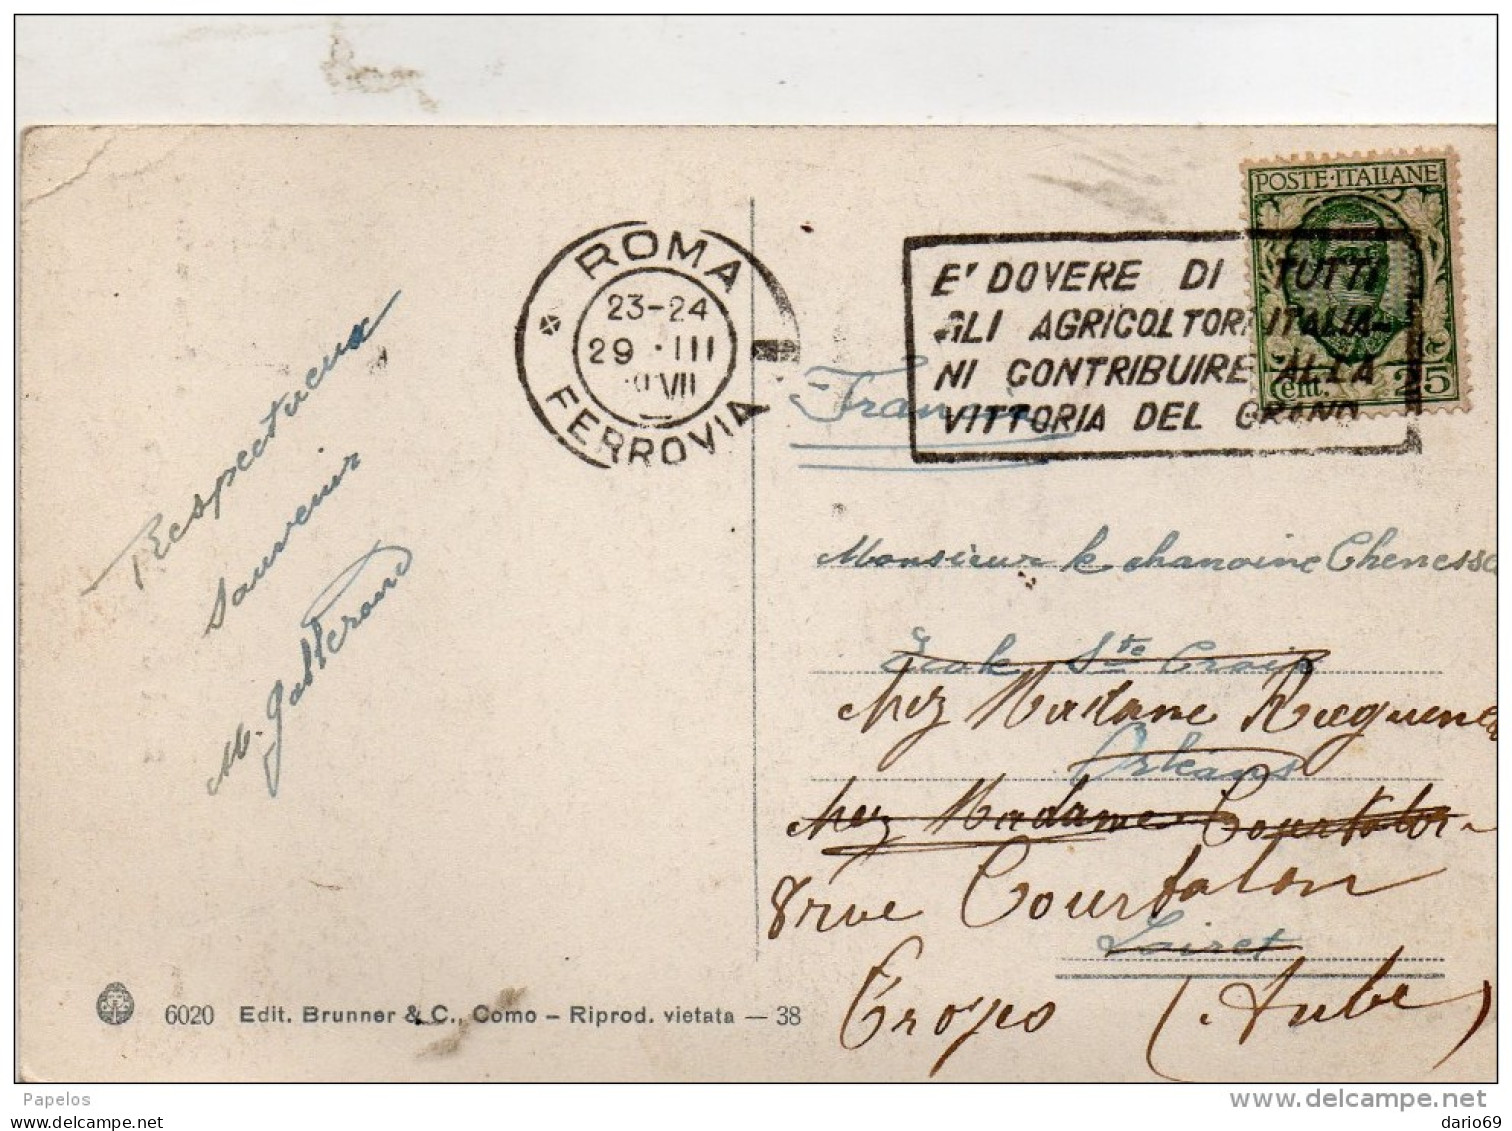 POSTE·ITALIANE
Cent. 25
ROMA
FERROVIA
23-24
29 · III
VII
E' DOVERE DI TUTTI
GLI AGRICOLTORI ITALIA-
NI CONTRIBUIRE ALLA
VITTORIA DEL GRANO
Francia
Respectueux
souvenir
Monsieur le chanoine Chenesse
École Ste Croix
chez Madame Raguenea
Orléans
chez Madame Courtalon
8 rue Courtalon
Loiret
Troyes (Aube)
6020 Edit. Brunner & C., Como - Riprod. vietata - 38
Papelos
www.delcampe.net
www.delcampe.net
dario69